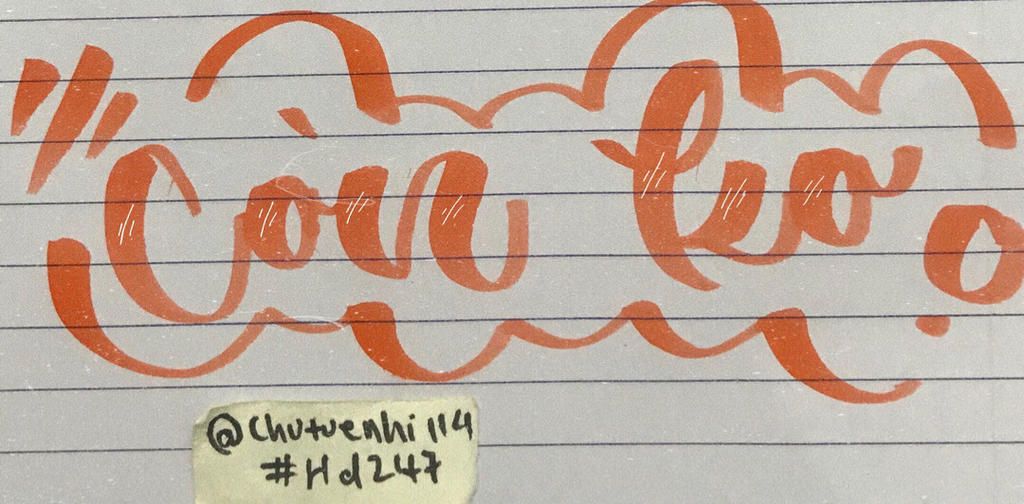 Còn leo
@chutuenhi114
#Hd247